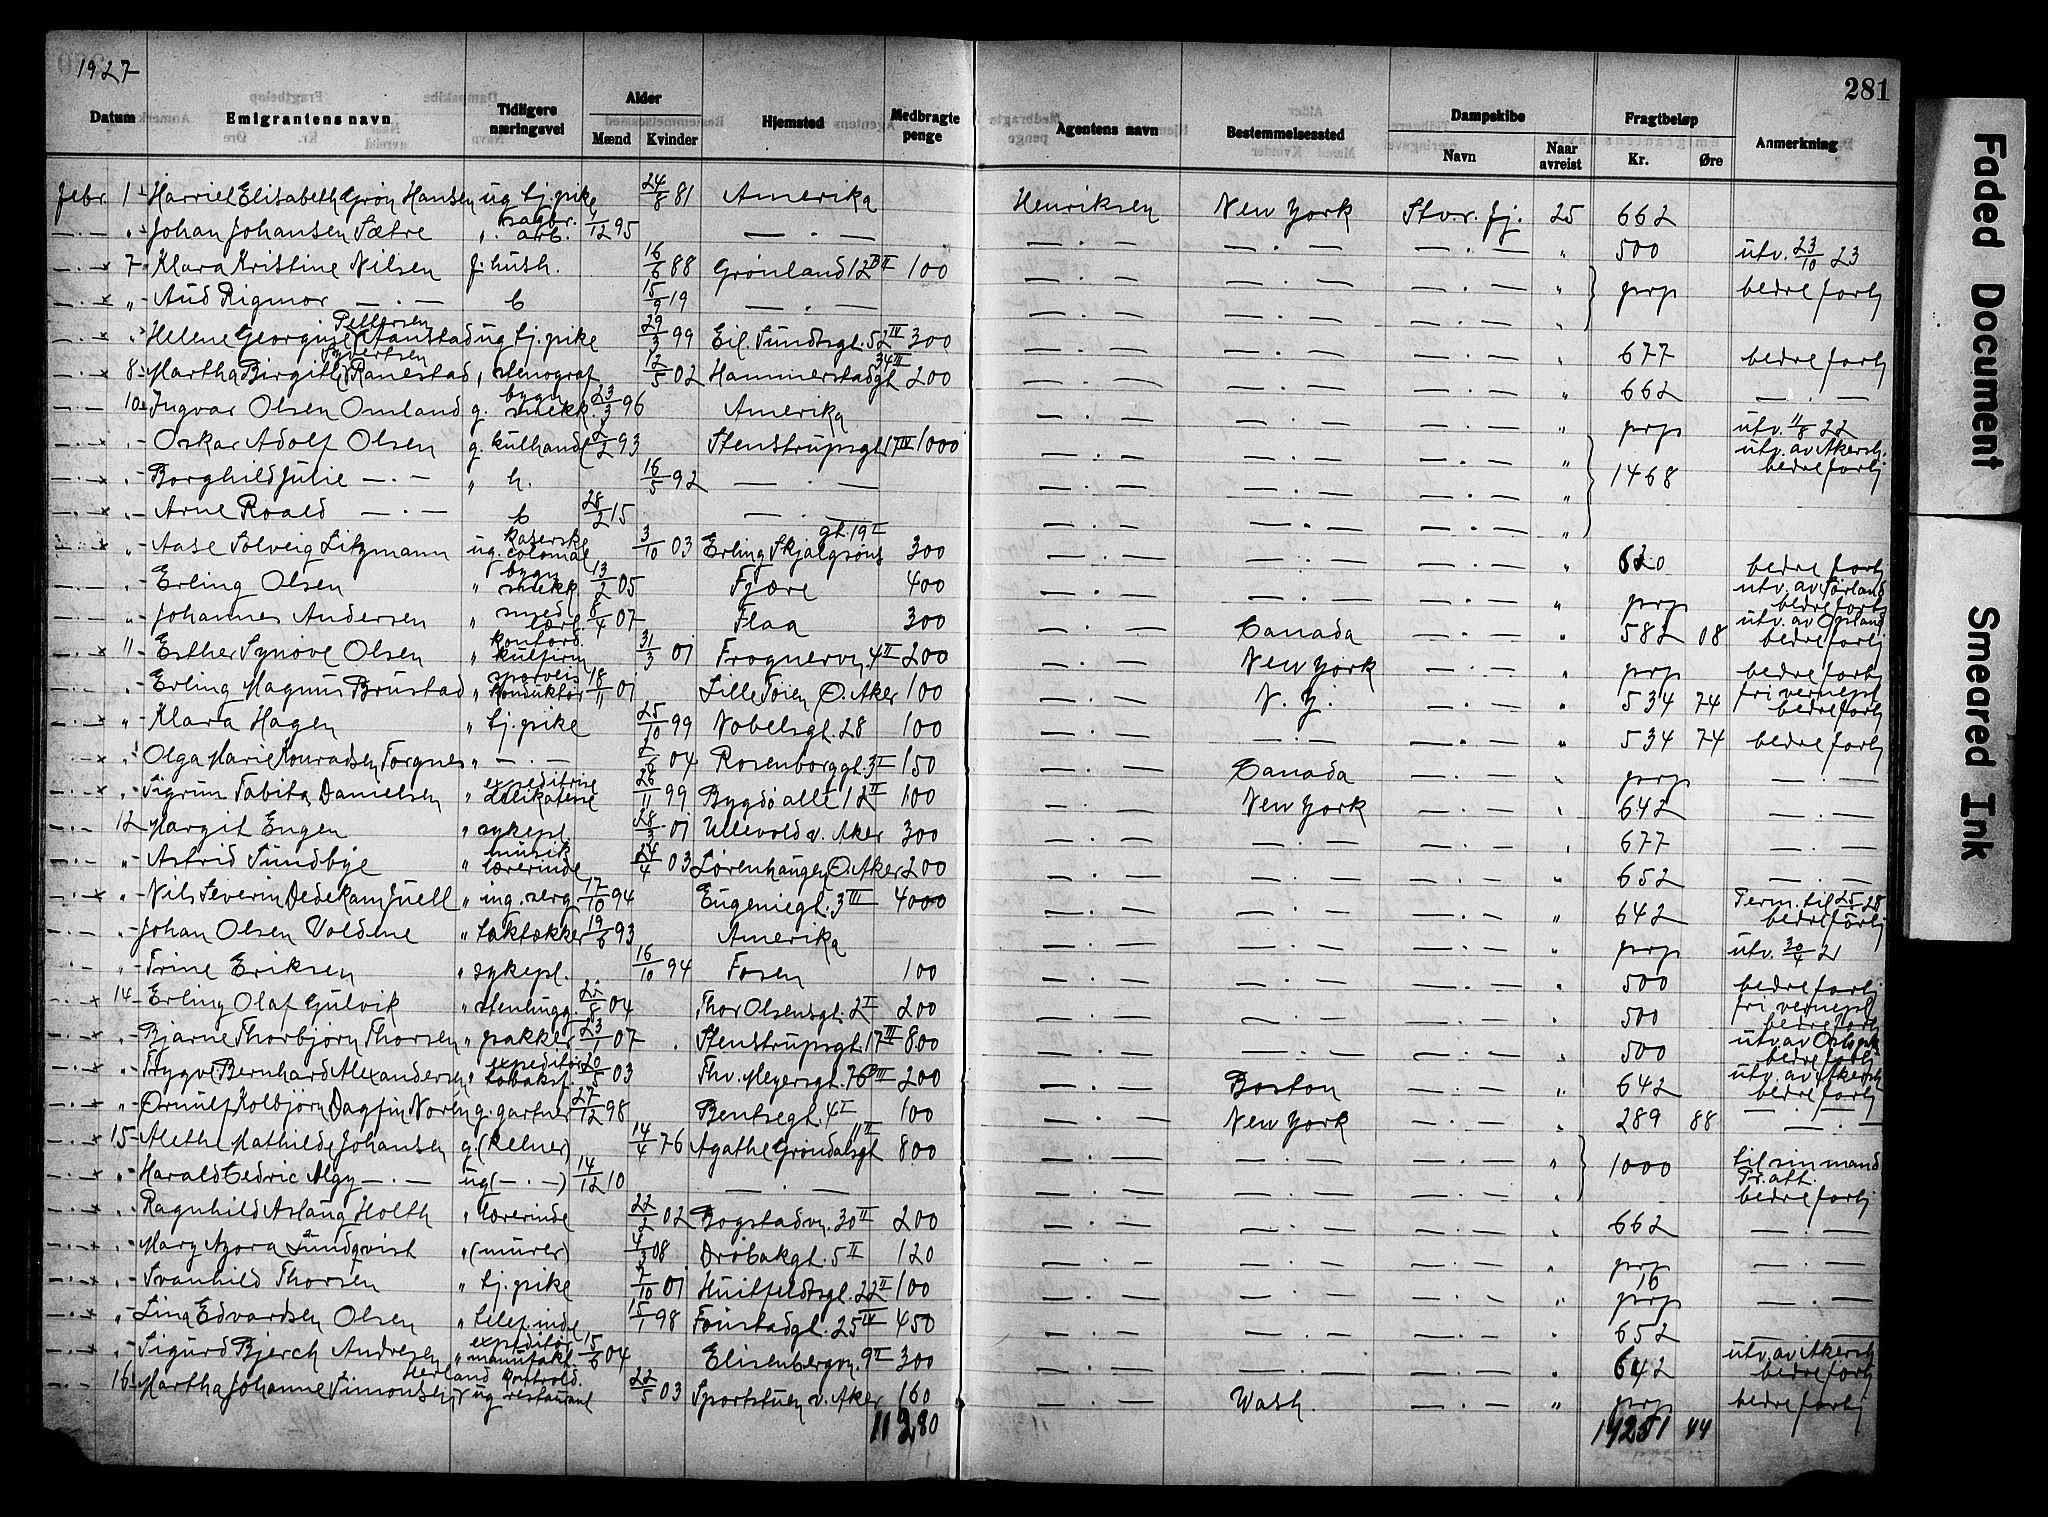 1927
281
Datum Emigrantens navn Tidligere næringsvei Alder Mænd Kvinder Hjemsted Medbragte penge Agentens navn Bestemmelsessted Dampskibe Navn Naar avreist Fragtbeløp Kr. Øre Anmerkning
Febr. 1 Harriet Elisabeth Grøn Hansen ug tj. pike 24/8 81 Amerika Henriksen New York Stv.r. fj. 25 662
— „ Johan Johansen Sætre „ sagbr. arb. 4/12 95 — . — — . — — . — — . — „ 500 utv. 23/10 23
— 7 Klara Kristine Nilsen f. hush. 16/6 88 Grønland 12 B II 100 — . — — . — — . — „ prp bedre forhj
— „ Aud Rigmor — . — b 15/9 19 — . — — . — — . — — . — „
— „ Helene Georgine Pettersen Stanstad ug tj. pike 29/3 99 Eil. Sundtsgt. 52 IV 300 — . — — . — — . — „ 677 bedre forhj
— 8 Martha Birgith Syvertsen Ranestad „ stenograf 12/5 02 Hammerstadgt 34 III 200 — . — — . — — . — „ 662 — . —
— 10 Ingvar Olsen Omland g. bygn snekk. 23/3 96 Amerika — . — — . — — . — „ prp utv. 11/8 22
— „ Oskar Adolf Olsen g. kulhandl 93 Stenstrupsgt 17 III 1000 — . — — . — — . — „ 1468 utv. av Akersh. bedre forhj
— „ Borghild Julie — . — „ h. 16/5 92 — . — — . — — . — — . — „
— „ Arne Roald — . — b 28/2 15 — . — — . — — . — — . — „
— „ Aase Solveig Litzmann ug. kasersk colonial 3/10 03 Erling Skjalgsøns gt. 19 II 300 — . — — . — — . — „ 620 bedre forhj
— „ Erling Olsen „ bygn snekk 13/2 05 Fjære 400 — . — — . — — . — „ prp utv. av Sørland bedre forhj
— „ Johannes Andersen „ smed lærl. 8/4 07 Flaa 300 — . — Canada — . — „ 582 08 utv. av Opland bedre forhj
— 11 Esther Synøve Olsen „ kontord. kulfirm 31/3 01 Frognervn. 4 II 200 — . — New York — . — „ prp bedre forhj
— „ Erling Magnus Brustad „ sporveis konduktør 18/11 01 Lille Tøien Ø. Aker 100 — . — N. Y. — . — „ 534 74 fri vernepl bedre forhj
— „ Klara Hagen „ tj. pike 25/10 99 Nobelsgt. 28 100 — . — — . — — . — „ 534 74 bedre forhj
— „ Olga Marie Konradsen Torgnes „ — . — 2/6 04 Rosenborggt. 3 II 150 — . — Canada — . — „ prp — . —
— „ Sigrun Tabita Danielsen „ expeditrise delikatesse 28/11 99 Bygdø alle 12 II 100 — . — New York — . — „ 642 — . —
— 12 Margit Engen „ sykepl. 28/3 01 Ullevold v. Aker 300 — . — — . — — . — „ 677 — . —
— „ Astrid Sundbye „ musik lærerinde 24/4 03 Sørenhaugen Ø. Aker 200 — . — — . — — . — „ 652 — . —
— „ Nils Severin Dedekam Juell „ ing. serg. 17/10 94 Eugeniegt. 3 III 4000 — . — — . — — . — „ 642 Perm. til 25/ 28 bedre forhj
— „ Johan Olsen Voldene „ taktækker 19/6 93 Amerika — . — — . — — . — „ prp utv. 30/4 21
— „ Trine Eriksen „ sykepl. 16/10 94 Fosen 100 — . — — . — — . — „ 500 bedre forhj
— 14 Erling Olaf Gulvik „ stenhugg. 22/8 04 Thor Olsensgt. 2 I 200 — . — — . — — . — „ 500 fri vernepl bedre forhj
— „ Bjarne Thorbjørn Thorsen „ pakker 23/1 07 Stenstrupsgt. 17 III 800 — . — — . — — . — „ 500 utv. av Oslo pk bedre forhj
— „ Trygve Bernhard Alexandersen „ expeditør tobaksf. 20/5 03 Thv. Meyersgt. 76 B III 200 — . — Boston — . — „ 642 utv. av Akersh bedre forhj
— „ Ørnulf Kolbjørn Dagfin Noren g. gartner 27/12 98 Bentsegt. 4 I 100 — . — New York — . — „ 289 88 — . —
— 15 Alethe Mathilde Johansen g. (kelner) 14/4 76 Agathe Grøndalsgt 11 II 800 — . — — . — — . — „ 1000 til sin mand
— „ Harald Cedric Algy — . — ug (— . —) 14/12 10 — . — — . — — . — — . — „ Pr. att. bedre forhj
— „ Ragnhild Aslaug Holth „ lærerinde 22/2 02 Bogstadvn. 30 II 200 — . — — . — — . — „ 662 — . —
— „ Mary Azora Lundqvist „ (murer) 4/3 08 Drøbakgt. 5 II 120 — . — — . — — . — „ prp — . —
— „ Svanhild Thorsen „ tj. pike 7/10 01 Huitfeldtsgt. 22 II 100 — . — — . — — . — „ 16 prp — . —
— „ Lina Edvardsen Olsen „ telef.inde 15/1 98 Fougstadgt. 25 IV 450 — . — — . — — . — „ 652 — . —
— „ Sigurd Bjerch Andresen „ expeditør manufakt. 15/6 04 Elisenbergvn. 9 II 300 — . — — . — — . — „ 642 utv. av Akersh bedre forhj
— 16 Martha Johanne Simonsen Herland ug kontrold. restaurant 22/5 03 Sportstuen v. Aker 160 — . — Wash. — . — „ prp bedre forhj
11280 14251 44
Faded Document
Smeared Ink